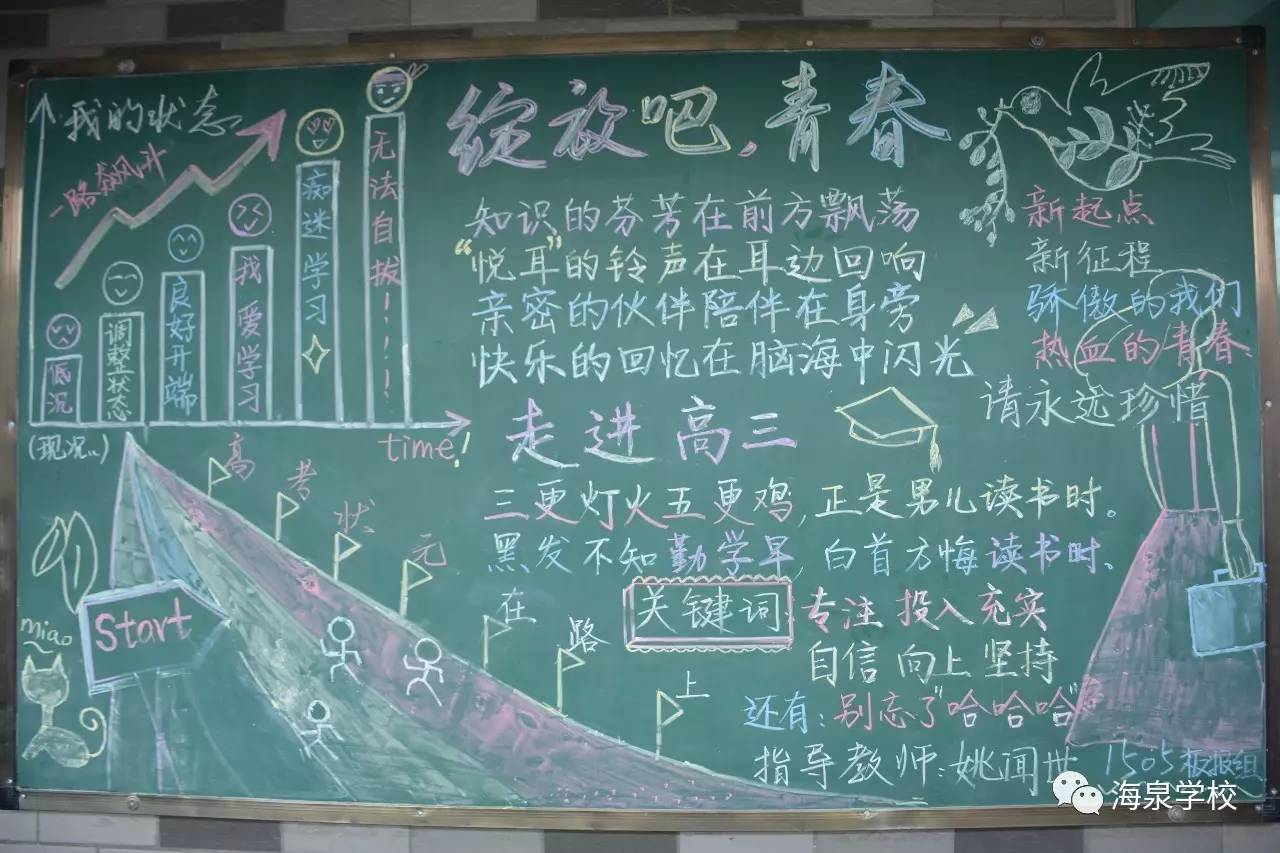 我的状态
一路飙风升
低沉
调整状态
良好开端
我爱学习
痴迷学习
无法自拔！！！！
(现况..)
time!
绽放吧,青春
知识的芬芳在前方飘荡
“悦耳”的铃声在耳边回响
亲密的伙伴陪伴在身旁
快乐的回忆在脑海中闪光
新起点
新征程
骄傲的我们
热血的青春
请永远珍惜
走进高三
三更灯火五更鸡,正是男儿读书时。
黑发不知勤学早,白首方悔读书时、
关键词:专注 投入 充实
自信 向上 坚持
还有:别忘了"哈哈哈"
指导教师:姚闻世
1505板报组
高考状元在路上
Start
miao
海泉学校